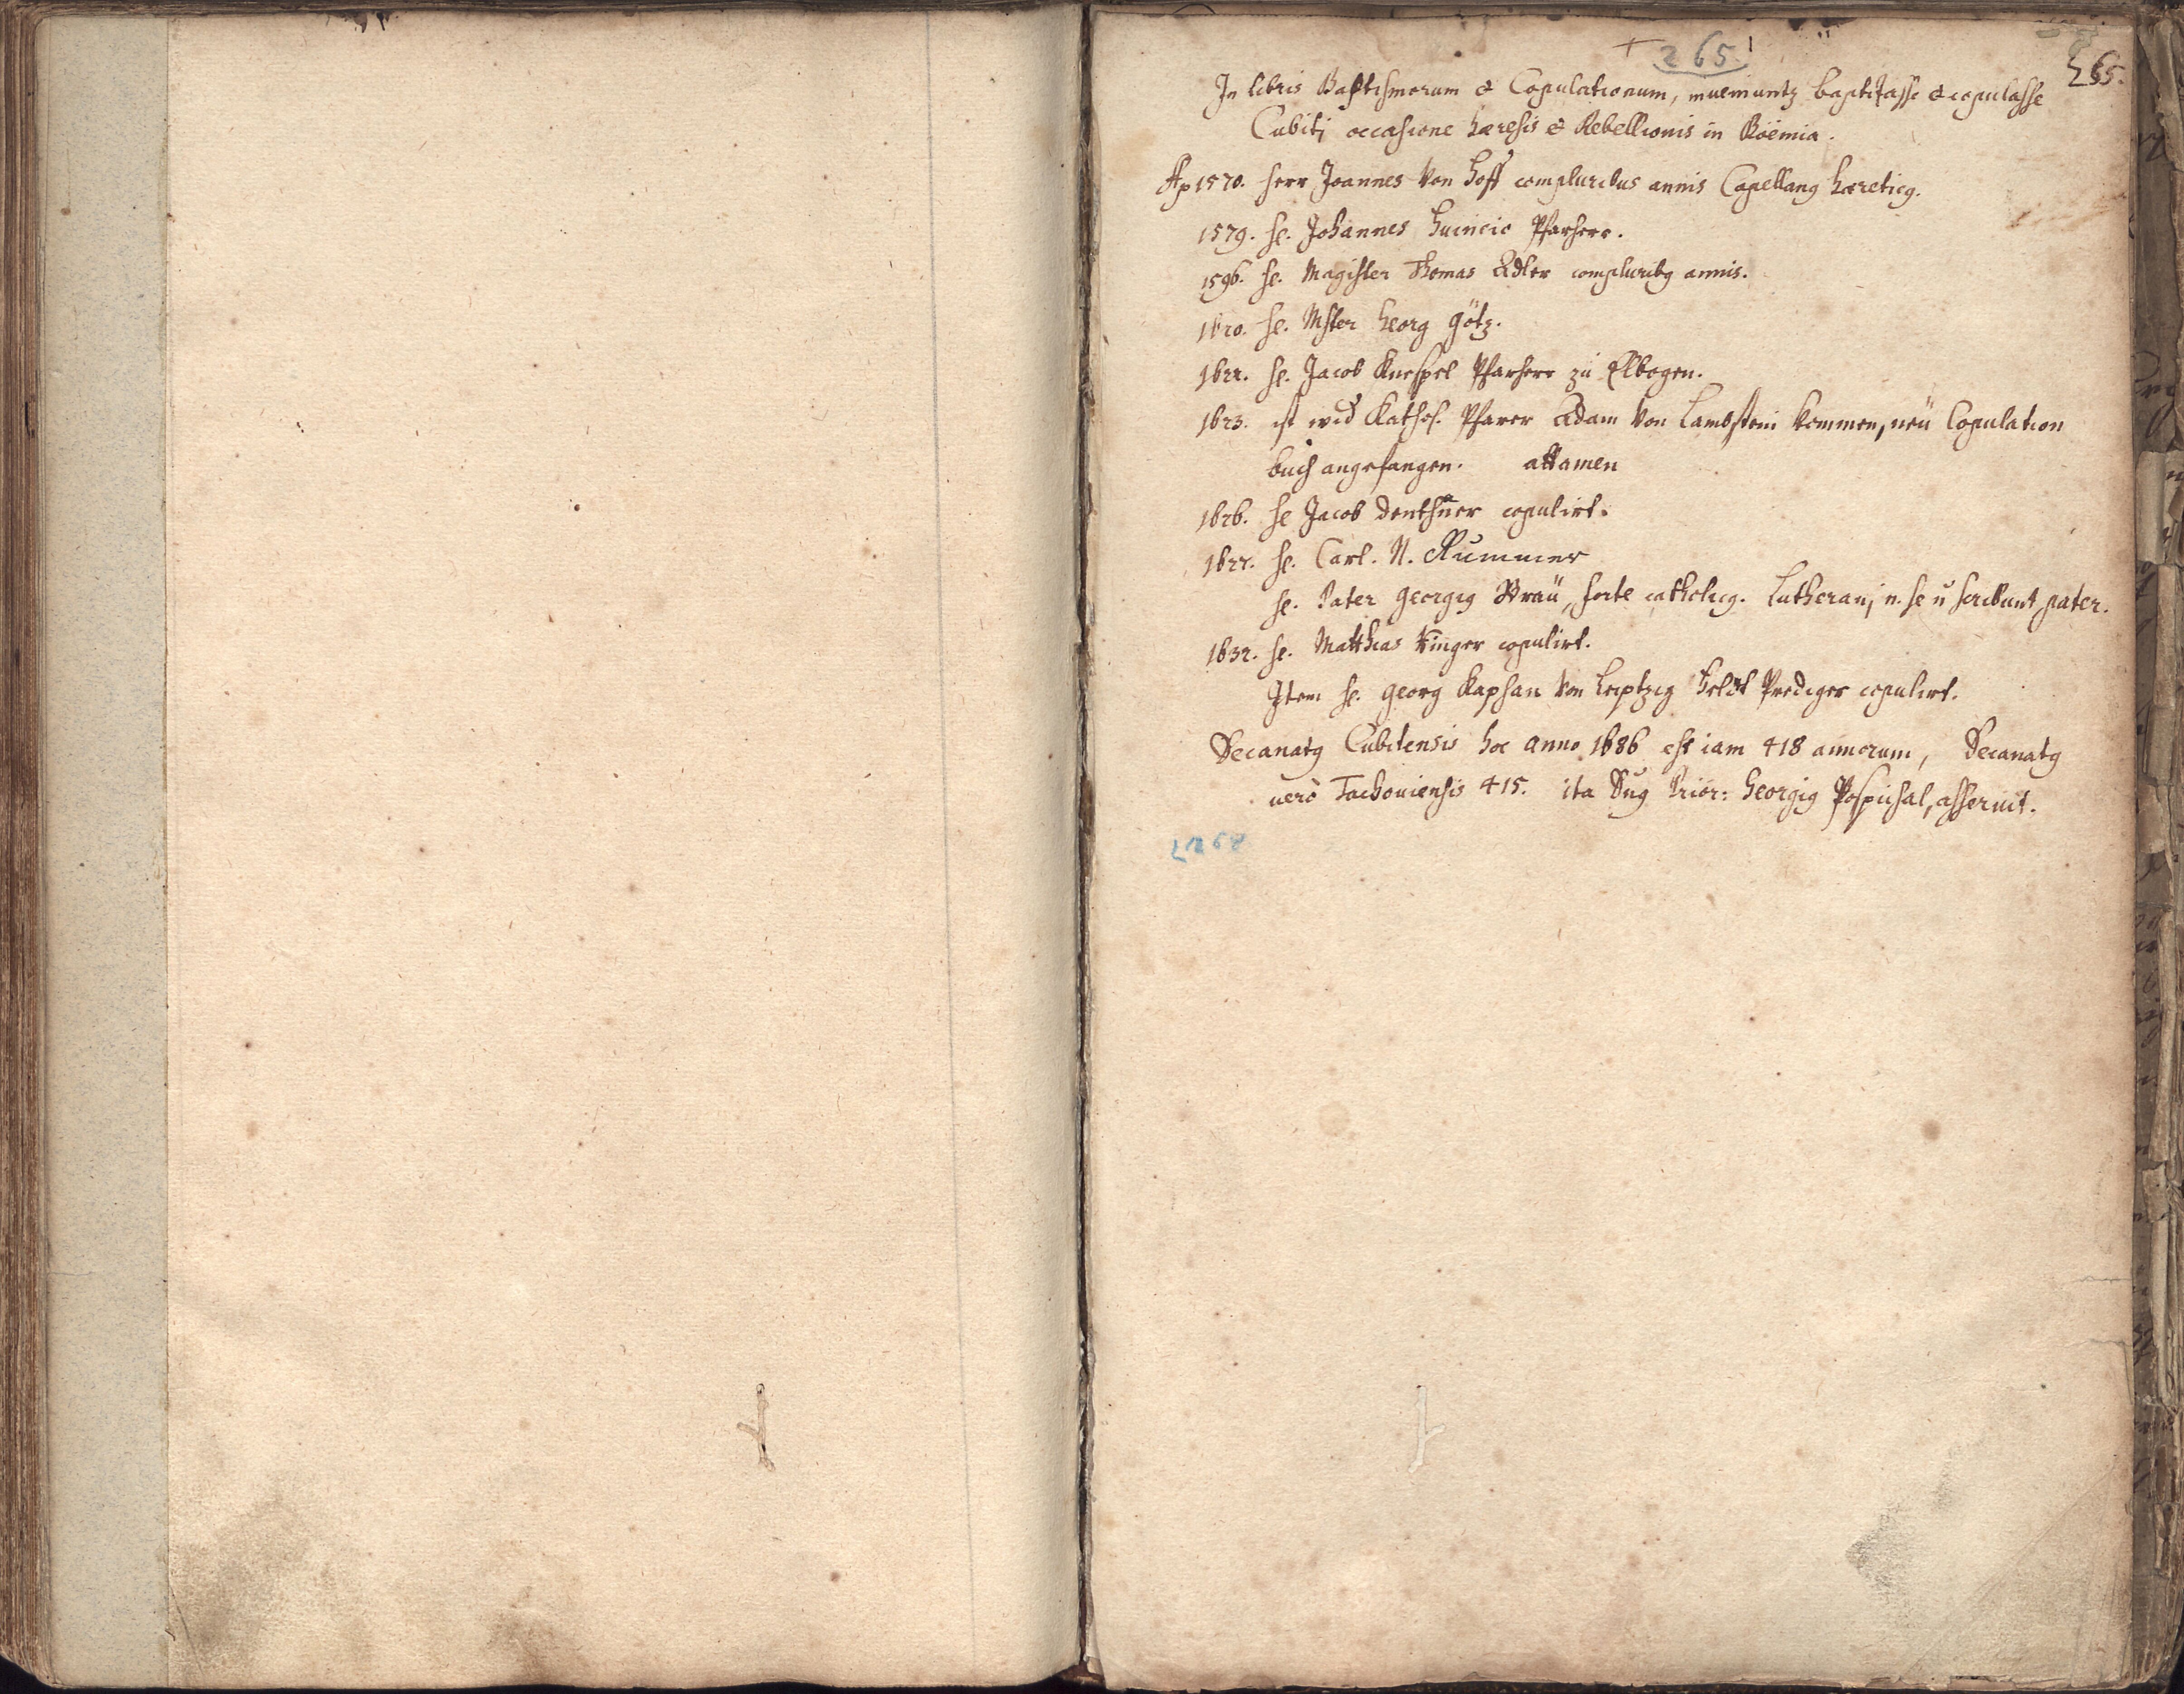 265
265.
In libris Baptismorum & Copulationum, inueniuntʒ baptizasse & copulasse
Cubitj occasione hæresis & Rebellionis in Boëmia.
Aō 1570. herr Joannes von Hoff compluribus annis Capellanꝰ hæreticꝰ.
1579. H. Johannes Pfarherr.
1596. H. Magister Thomas Adler compluribꝰ annis.
1620. H. Mster Georg Götz.
1622. H. Jacob Knespel Pfarherr zu Elbogen.
1623. ist wid Kathol. Pfarer Adam von Lambstein kommen, neü Copulation
buch angefangen. attamen
1626. H Jacob copulirt.
1627. H. Carl. N. Kummer
H. Pater Georgꝰ Bräu, forte catholicꝰ. Lutheranj n. se n̄ scribunt pater.
1632. H. Matthias Unger copulirt.
Item H. Georg Kaphan von Leiptzig Feldt Prediger copulirt.
Decanatꝰ Cubitensis hoc anno 1686 est iam 418 annorum, Decanatꝰ
uero Tachouiensis 415. ita Dnꝰ Prior: Georgiꝰ Pospichal, asseruit.
1268